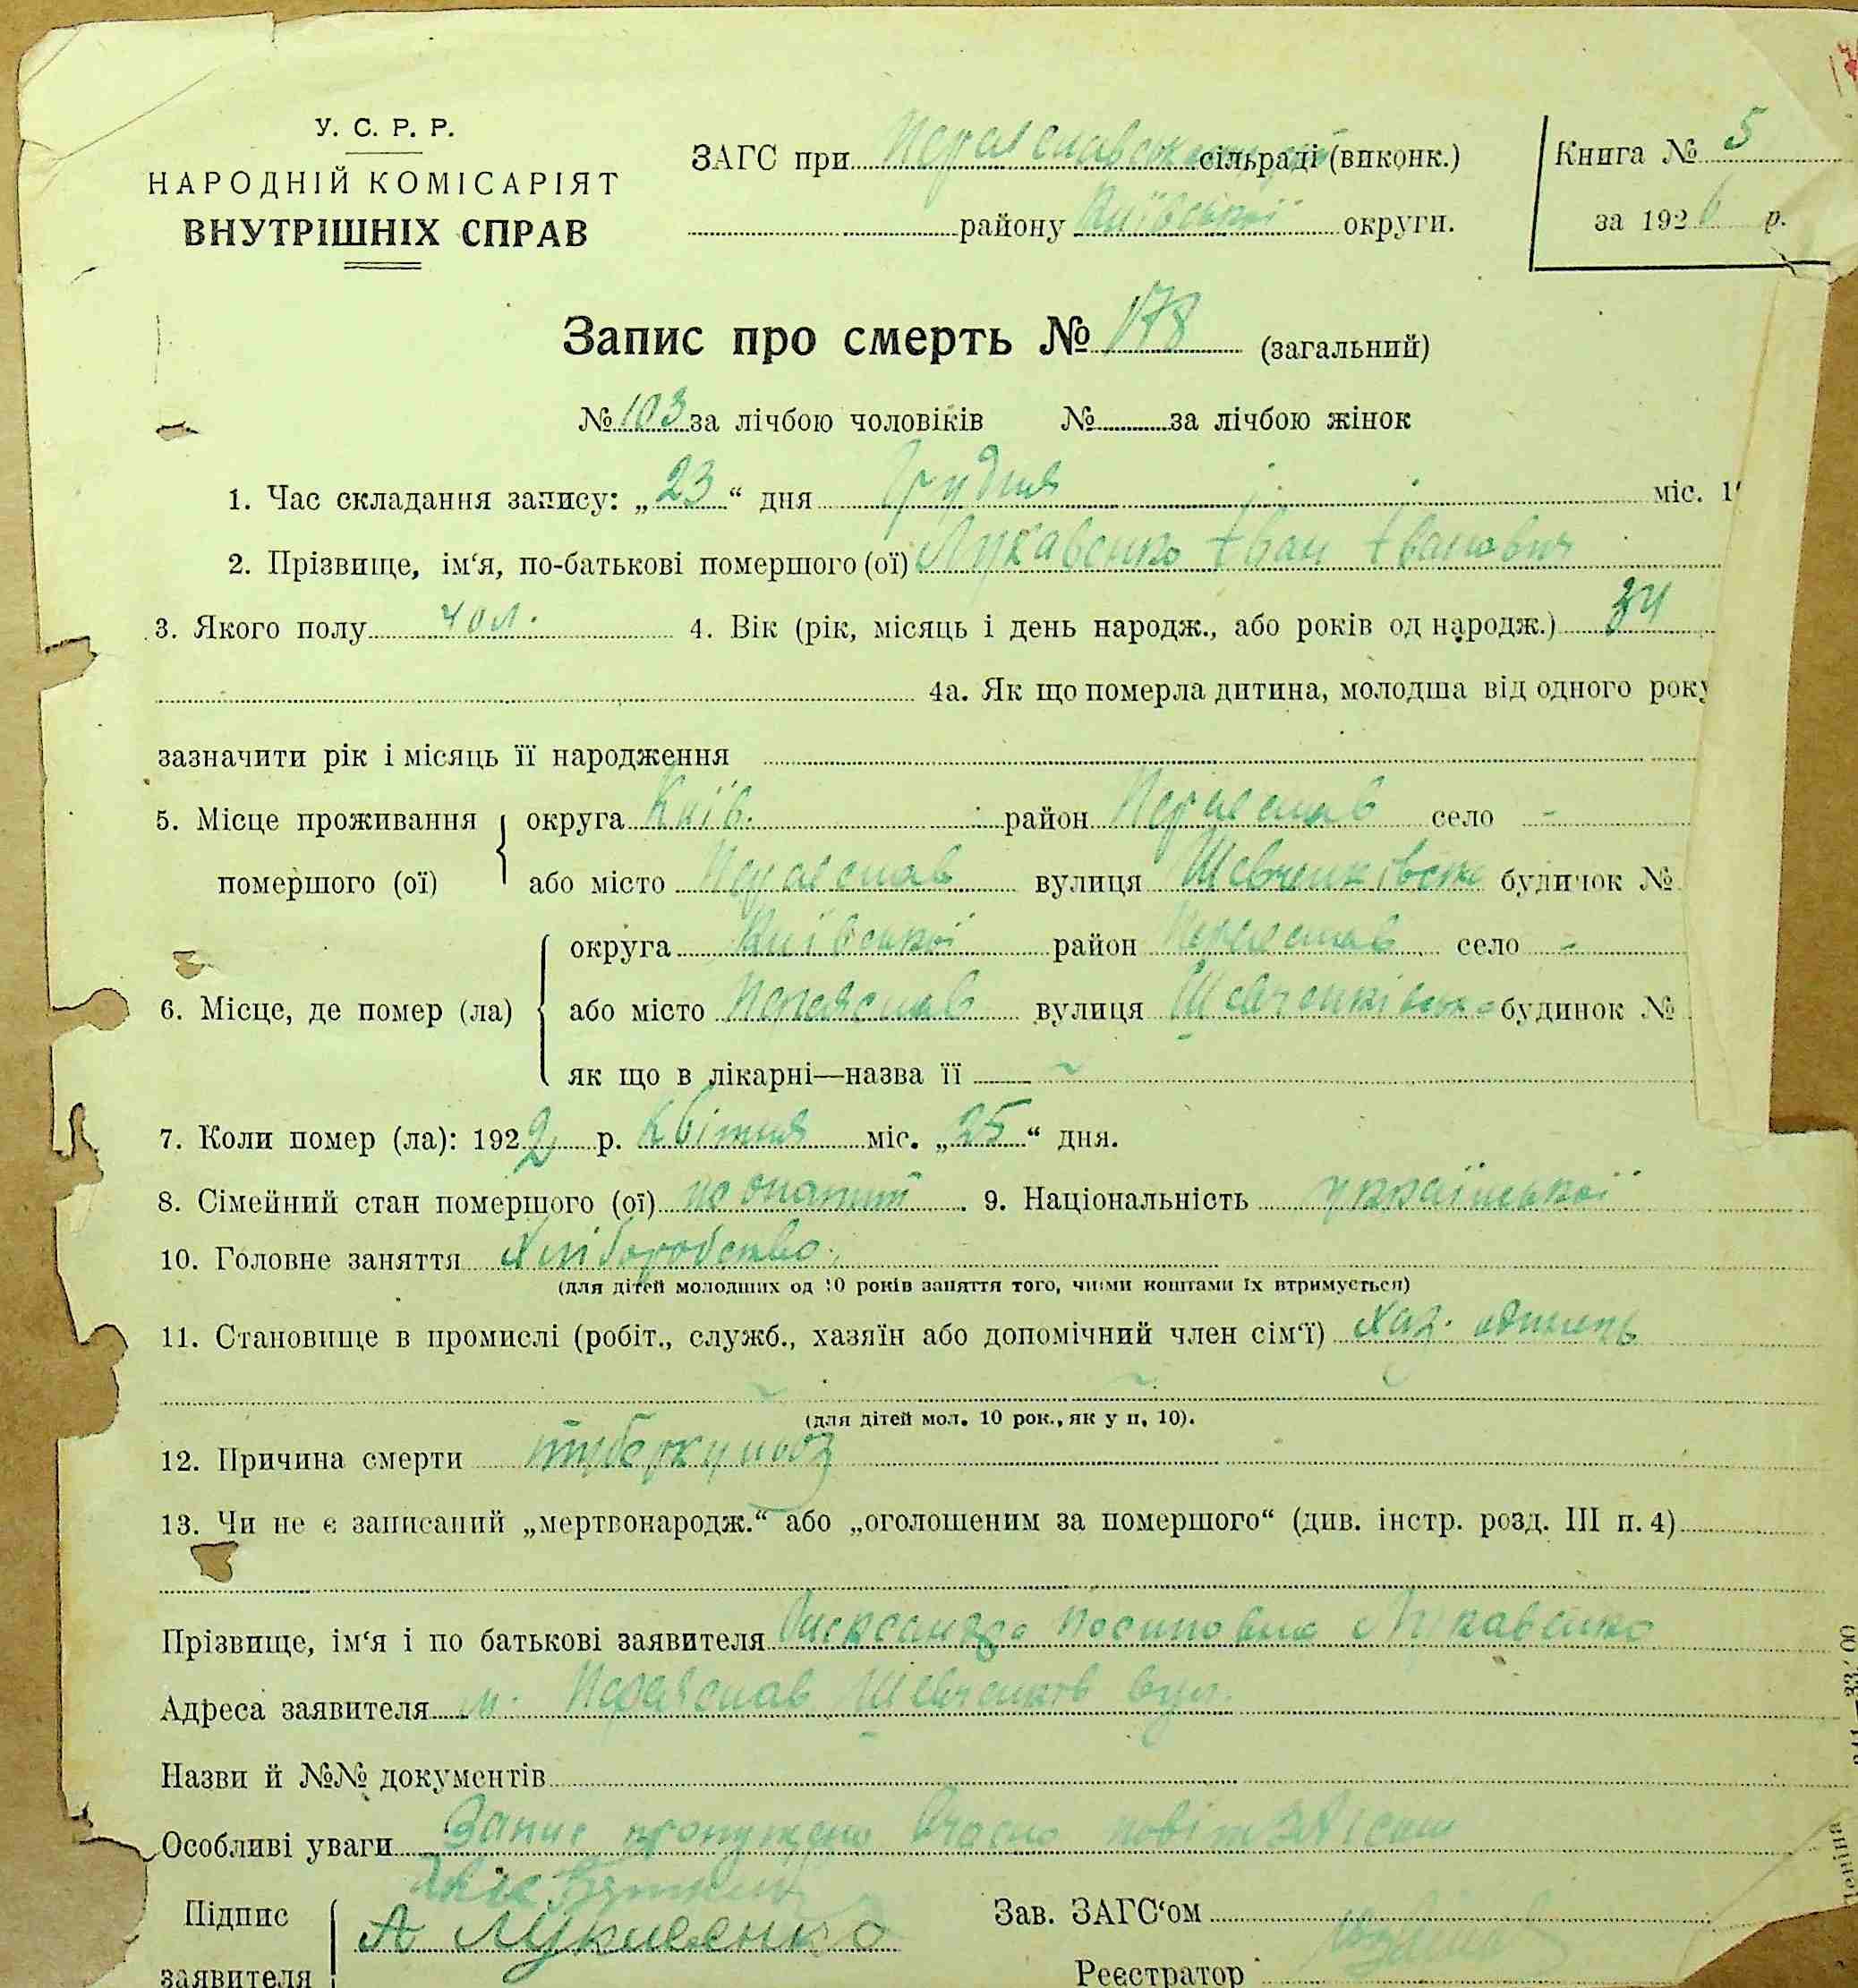 У. С. Р. Р.
НАРОДНІЙ КОМІСАРІЯТ
ВНУТРІШНІХ СПРАВ
ЗАГС при сільраді (виконк.)
району Київської округи.
Книга № 5
за 1926 р.
Запис про смерть № 178 (загальний)
№ 103 за лічбою чоловіків № за лічбою жінок
1. Час складання запису: „23“ дня Грудня міс. 1
2. Прізвище, ім‘я, по-батькові помершого (ої) Лукавенко Іван Іванович
3. Якого полу чол. 4. Вік (рік, місяць і день народж., або років од народж.) 34
4а. Як що померла дитина, молодша від одного року
зазначити рік і місяць її народження
5. Місце проживання помершого (ої) округа Київ. район Переяслав село -
або місто Переяслав вулиця Шевченківськ будинок №
6. Місце, де помер (ла) округа Київської район Переяслав село -
або місто Переяслав вулиця Шевченківськ будинок №
як що в лікарні—назва її
7. Коли помер (ла): 1922 р. Квітня міс. „25“ дня.
8. Сімейний стан помершого (ої) 9. Національність української
10. Головне заняття Хліборобство.
(для дітей молодших од 10 років заняття того, чиїми коштами їх втримується)
11. Становище в промислі (робіт., служб., хазяїн або допомічний член сім‘ї) Хаз.
(для дітей мол. 10 рок., як у п, 10).
12. Причина смерти туберкульоз
13. Чи не є записаний „мертвонародж.“ або „оголошеним за помершого“ (див. інстр. розд. III п. 4)
Прізвище, ім‘я і по батькові заявителя Лукавенко
Адреса заявителя м. Переяслав Шевченков вул.
Назви й №№ документів
Особливі уваги Запис пропущено
Підпис заявителя А Лукавенко
Зав. ЗАГС‘ом
Реєстратор